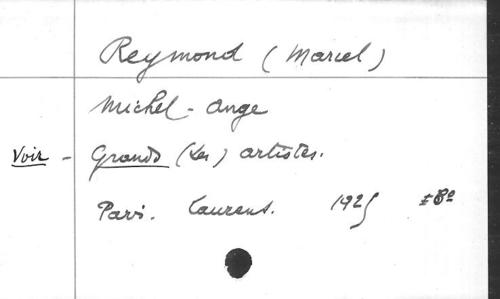 Reymond (Marcel)
Michel-Ange
Voir - Grands (Les) artistes.
Paris. Laurens. 1925 in-8º